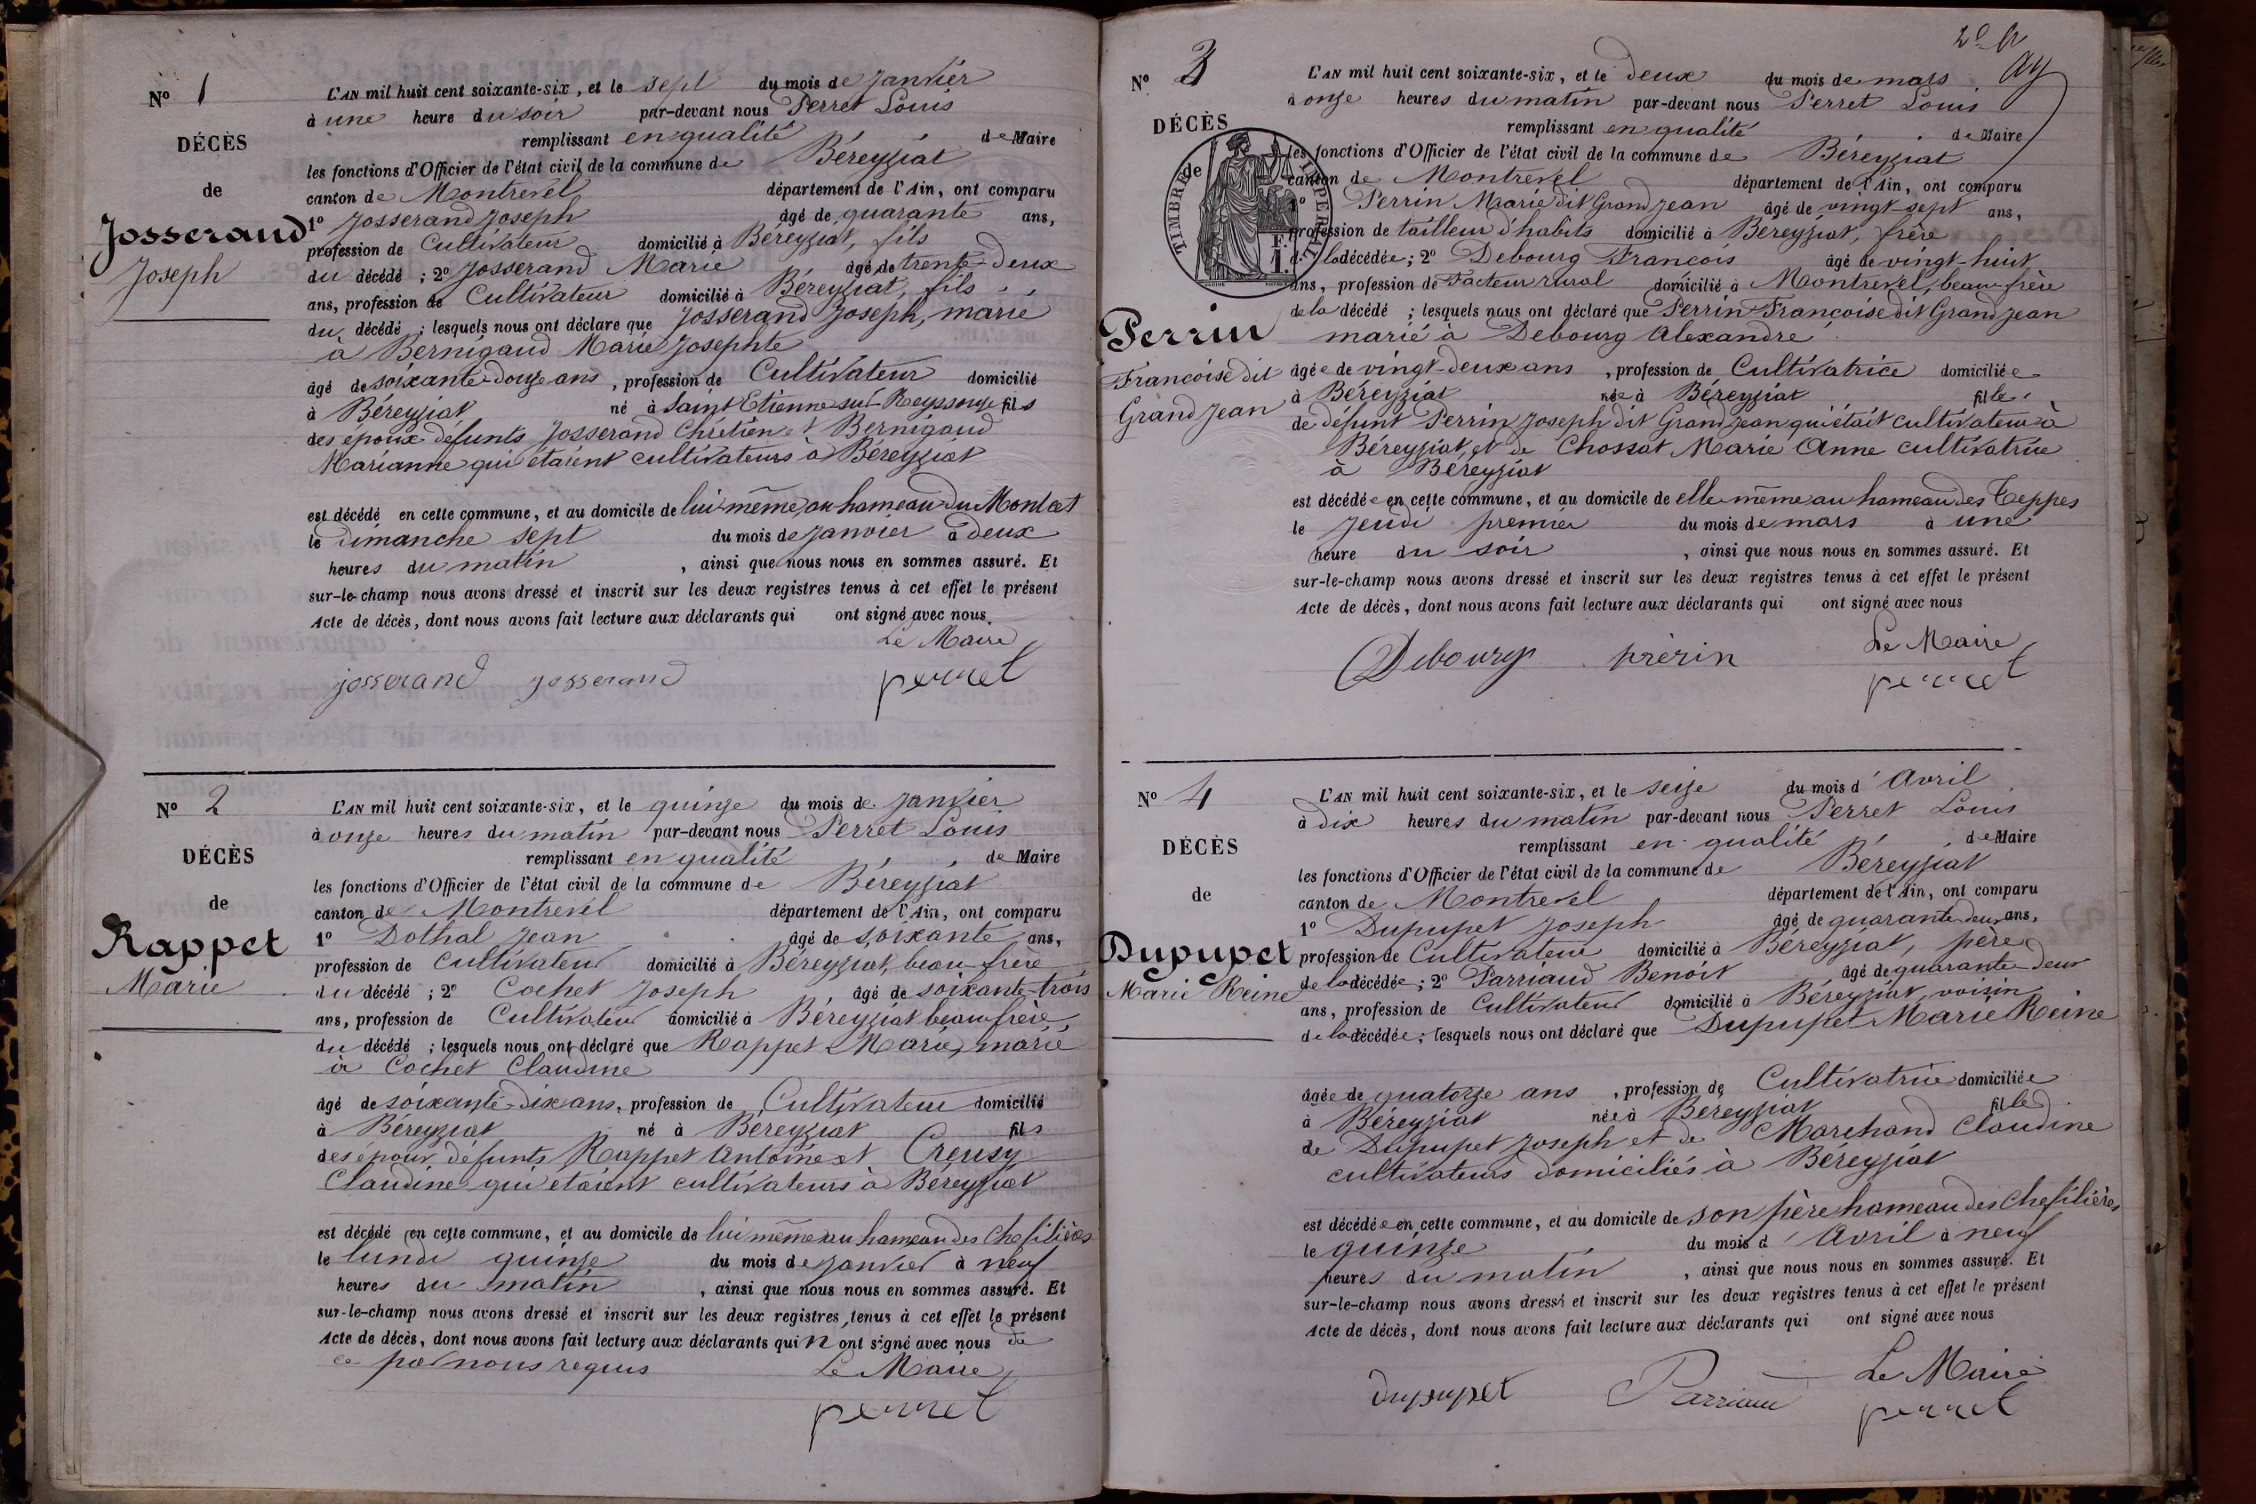 N° 1
DÉCÈS
de
Josserand
Joseph
L'AN mil huit cent soixante-six, et le sept du mois de janvier
à une heure du soir par-devant nous Perret Louis
remplissant en qualité de Maire
les fonctions d'Officier de l'état civil de la commune de Béreyziat
canton de Montrevel département de l'Ain, ont comparu
1° Josserand Joseph âgé de quarante ans,
profession de Cultivateur domicilié à Béreyziat, fils
du décédé ; 2° Josserand Marie âgé de trente-deux
ans, profession de Cultivateur domicilié à Béreyziat, fils
du décédé ; lesquels nous ont déclaré que Josserand Joseph, marié
à Bernigaud Marie Josephte
âgé de soixante-douze ans, profession de Cultivateur domicilié
à Béreyziat né à Saint Etienne sur Reyssouze fils
des époux défunts Josserand Chrétien et Bernigaud
Marianne qui étaient cultivateurs à Béreyziat
est décédé en cette commune, et au domicile de lui-même au hameau du Montat
le dimanche sept du mois de janvier à deux
heures du matin, ainsi que nous nous en sommes assuré. Et
sur-le-champ nous avons dressé et inscrit sur les deux registres tenus à cet effet le présent
Acte de décès, dont nous avons fait lecture aux déclarants qui ont signé avec nous.
Le Maire
josserand josserand perret
N° 2
DÉCÈS
de
Rappet
Marie
L'AN mil huit cent soixante-six, et le quinze du mois de janvier
à onze heures du matin par-devant nous Perret Louis
remplissant en qualité de Maire
les fonctions d'Officier de l'état civil de la commune de Béreyziat
canton de Montrevel département de l'Ain, ont comparu
1° Dothal Jean âgé de soixante ans,
profession de cultivateur domicilié à Béreyziat, beau-frère
du décédé ; 2° Cochet Joseph âgé de soixante-trois
ans, profession de Cultivateur domicilié à Béreyziat beau frère
du décédé ; lesquels nous ont déclaré que Rappet Marie, marié
à Cochet Claudine
âgé de soixante-dix ans, profession de Cultivateur domicilié
à Béreyziat né à Béreyziat fils
des époux défunts Rappet Antoine et Creusy
Claudine qui étaient cultivateurs à Béreyziat
est décédé en cette commune, et au domicile de lui même au hameau des Chefilières
le lundi quinze du mois de janvier à neuf
heures du matin, ainsi que nous nous en sommes assuré. Et
sur-le-champ nous avons dressé et inscrit sur les deux registres tenus à cet effet le présent
Acte de décès, dont nous avons fait lecture aux déclarants qui n ont signé avec nous de
ce par nous requis Le Maire
perret
N° 3
DÉCÈS
de
TIMBRE IMPERIAL
Perrin
Francoise dit
Grand Jean
L'AN mil huit cent soixante-six, et le deux du mois de mars
à onze heures du matin par-devant nous Perret Louis
remplissant en qualité de Maire
les fonctions d'Officier de l'état civil de la commune de Béreyziat
canton de Montrevel département de l'Ain, ont comparu
1° Perrin Marie dit Grand Jean âgé de vingt-sept ans,
profession de tailleur d'habits domicilié à Béreyziat, frère
de la décédée ; 2° Debourg François âgé de vingt-huit
ans, profession de Facteur rural domicilié à Montrevel, beau-frère
de la décédé ; lesquels nous ont déclaré que Perrin Françoise dit Grand jean
marié à Debourg Alexandre
âgée de vingt-deux ans, profession de Cultivatrice domiciliée
à Béreyziat née à Béreyziat fille
de défunt Perrin Joseph dit Grand jean qui était cultivateur à
Béreyziat, et de Chossat Marie Anne cultivatrice
à Béreyziat
est décédée en cette commune, et au domicile de elle-même au hameau des Teppes
le jeudi premier du mois de mars à une
heure du soir, ainsi que nous nous en sommes assuré. Et
sur-le-champ nous avons dressé et inscrit sur les deux registres tenus à cet effet le présent
Acte de décès, dont nous avons fait lecture aux déclarants qui ont signé avec nous
Le Maire
Debourg prerin perret
N° 4
DÉCÈS
de
Dupupet
Marie Reine
L'AN mil huit cent soixante-six, et le seize du mois d'Avril
à dix heures du matin par-devant nous Perret Louis
remplissant en qualité de Maire
les fonctions d'Officier de l'état civil de la commune de Béreyziat
canton de Montrevel département de l'Ain, ont comparu
1° Dupupet Joseph âgé de quarante-deux ans,
profession de Cultivateur domicilié à Béreyziat, père
de la décédée ; 2° Parriaud Benoit âgé de quarante-deux
ans, profession de Cultivateur domicilié à Béreyziat, voisin
de la décédée ; lesquels nous ont déclaré que Dupupet Marie Reine
âgée de quatorze ans, profession de Cultivatrice domiciliée
à Béreyziat née à Béreyziat fille
de Dupupet Joseph et de Marchand Claudine
cultivateurs domiciliés à Béreyziat
est décédée en cette commune, et au domicile de son père hameau des Chefilières
le quinze du mois d'Avril à neuf
heures du matin, ainsi que nous nous en sommes assuré. Et
sur-le-champ nous avons dressé et inscrit sur les deux registres tenus à cet effet le présent
Acte de décès, dont nous avons fait lecture aux déclarants qui ont signé avec nous
Le Maire
Dupupet Parriau perret